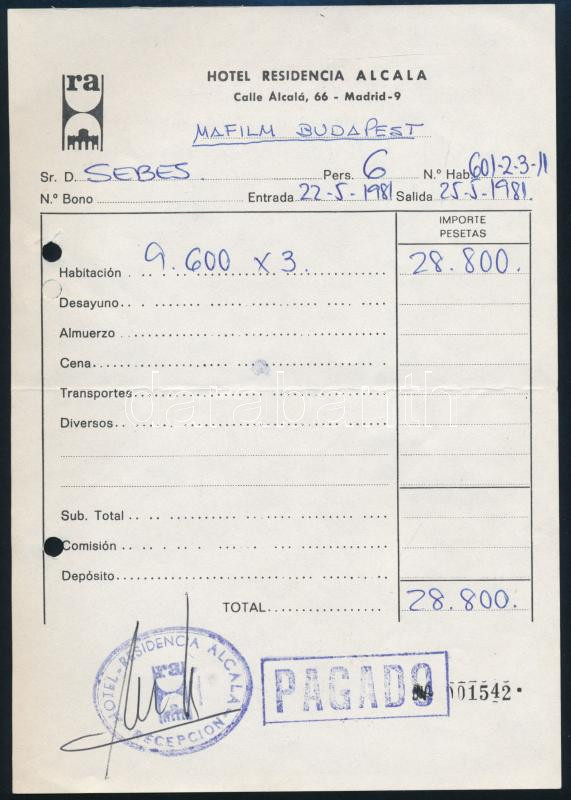 ra
HOTEL RESIDENCIA ALCALA
Calle Alcalá, 66 - Madrid-9
MAFILM BUDAPEST
Sr. D. SEBES. Pers. 6 N.º Hab. 601-2-3-11
N.º Bono Entrada 22-5-1981 Salida 25-5-1981.
IMPORTE
PESETAS
Habitación 9.600 x 3. 28.800.
Desayuno
Almuerzo
Cena
Transportes
darabanth
Diversos
Sub. Total
Comisión
Depósito
TOTAL 28.800.
HOTEL-RESIDENCIA ALCALA
ra
RECEPCION
PAGADO
001542